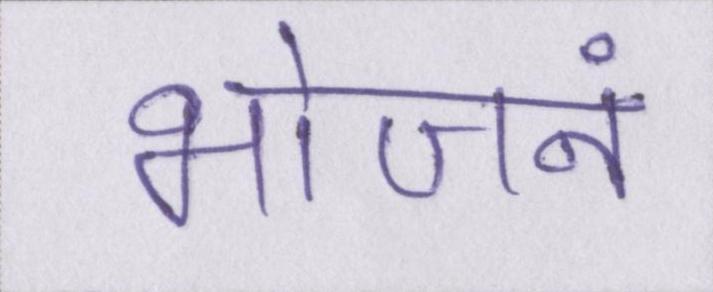 भोजनं